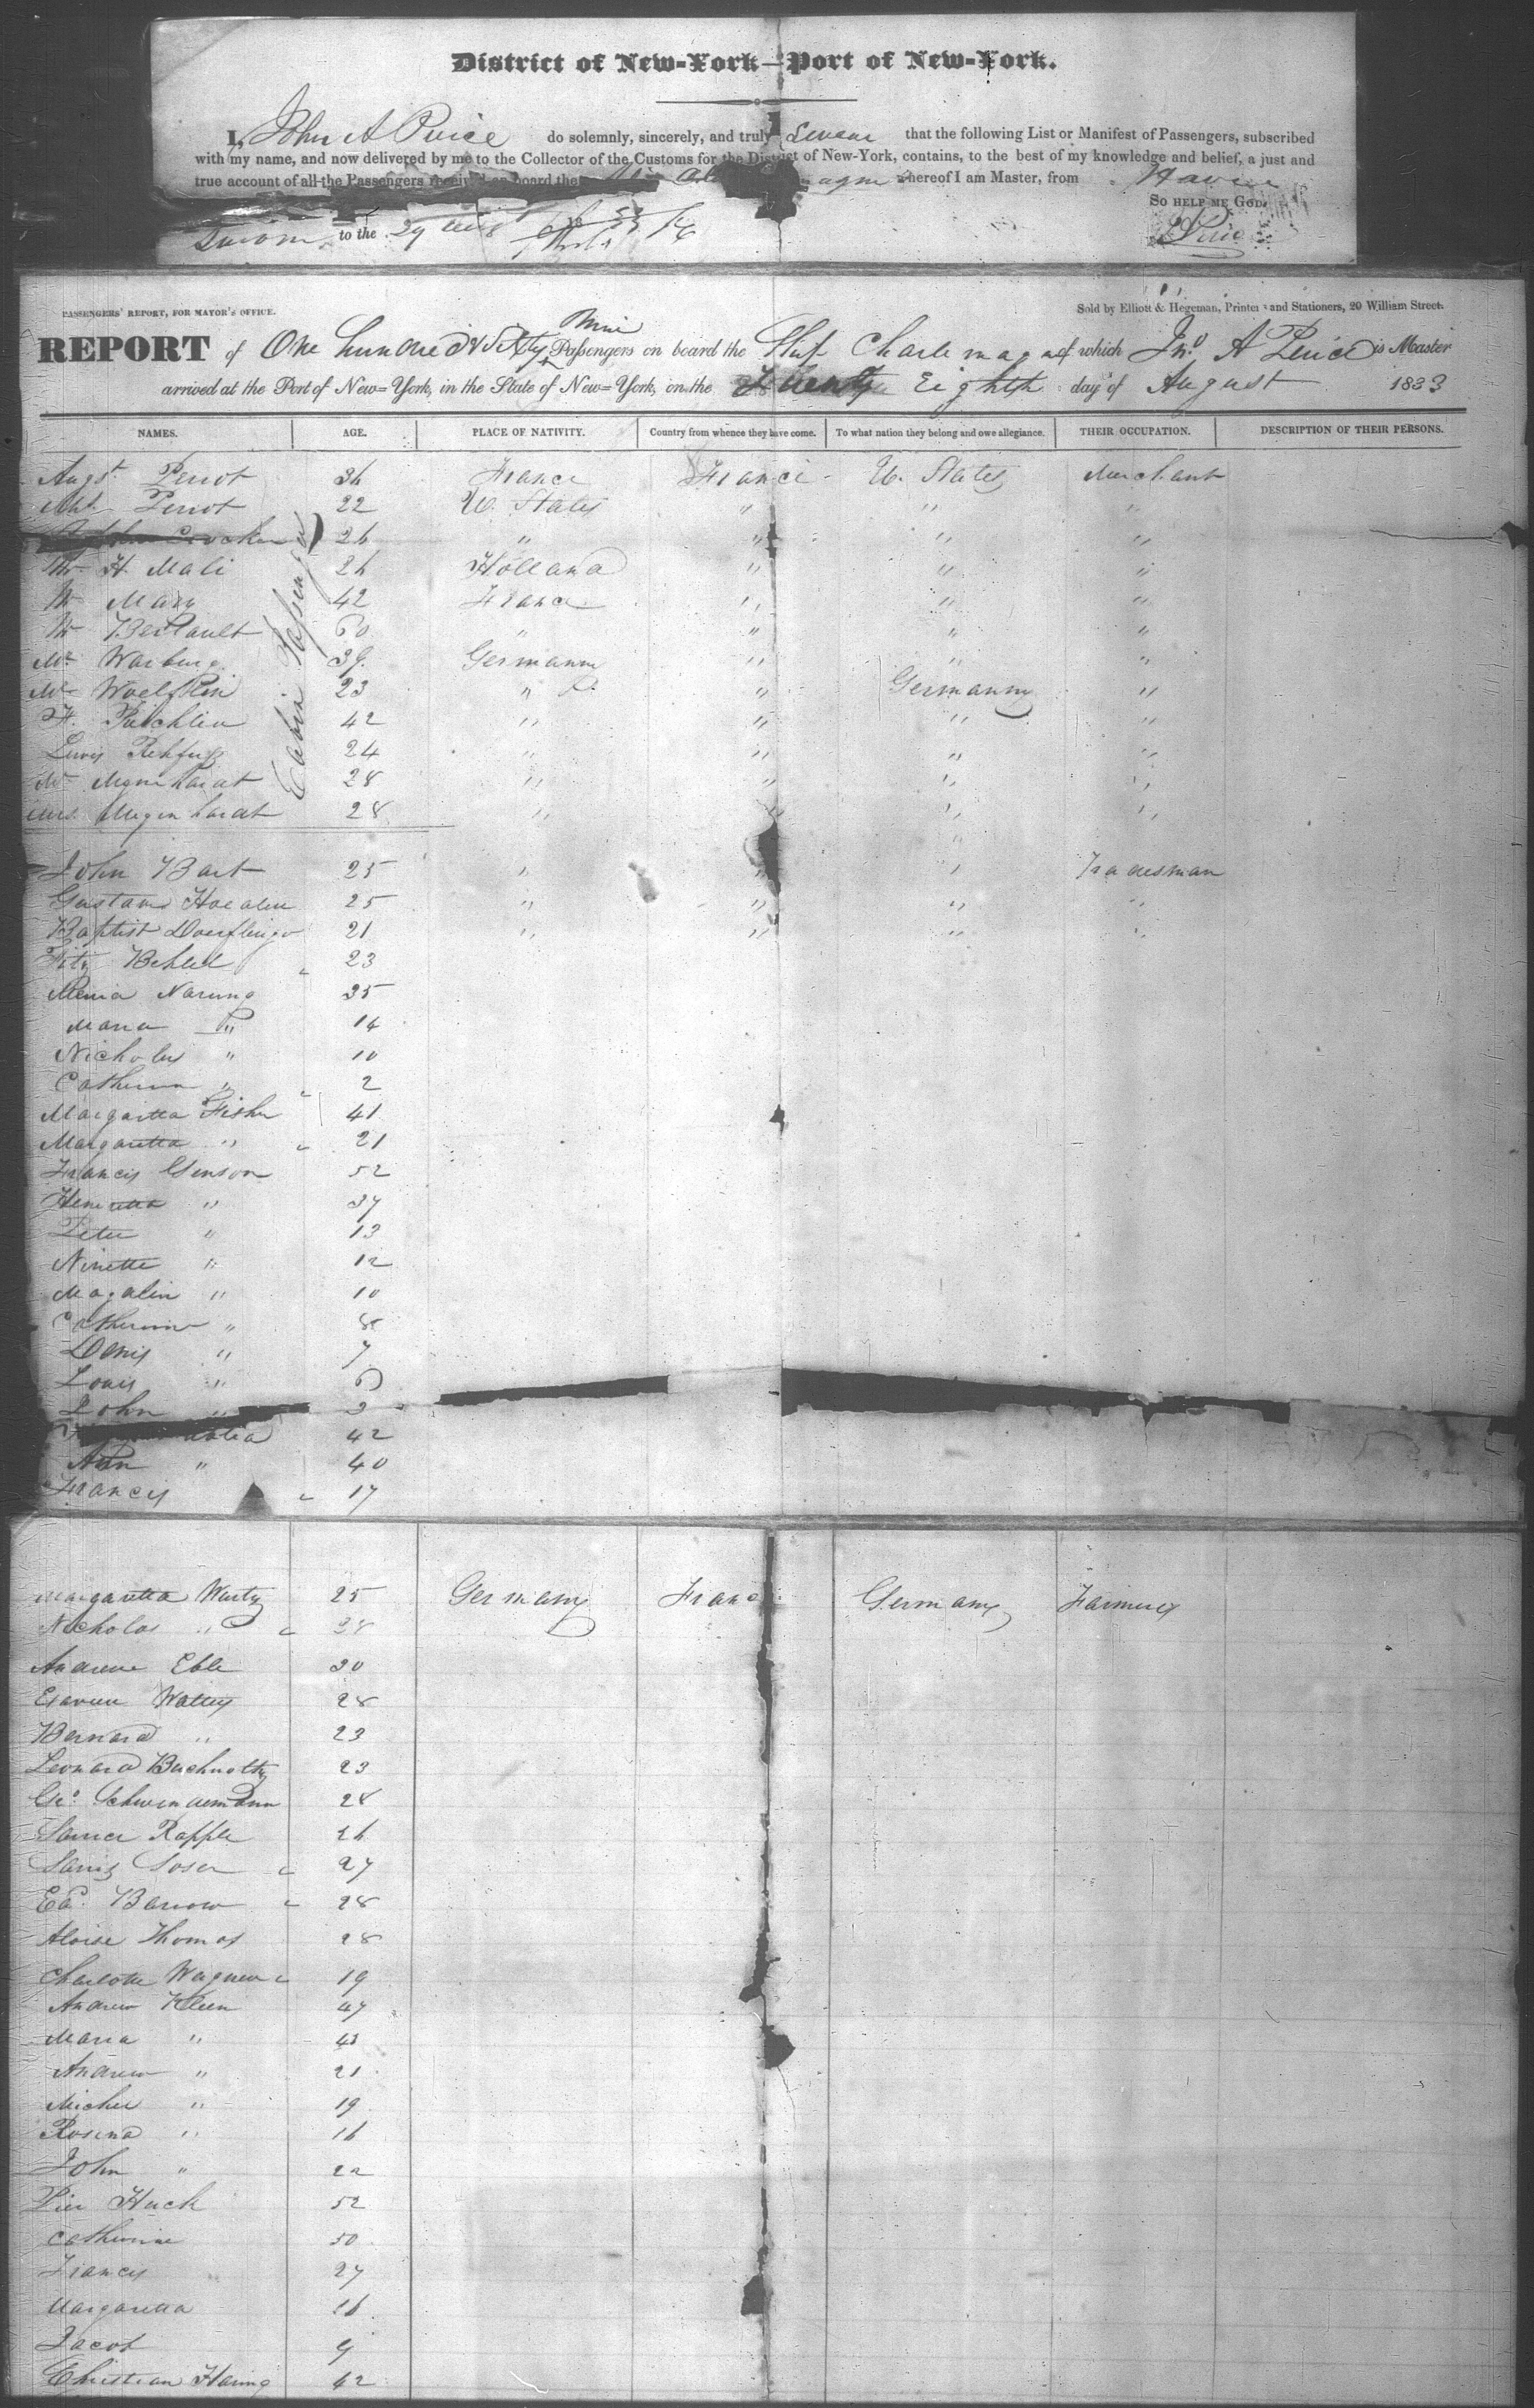 District of New-York—Port of New-York.
I, John A Price do solemnly, sincerely, and truly Swear that the following List or Manifest of Passengers, subscribed
with my name, and now delivered by me to the Collector of the Customs for the District of New-York, contains, to the best of my knowledge and belief, a just and
true account of all the Passengers received on board the whereof I am Master, from Havre
So HELP ME GOD.
Sworn to the 29
PASSENGERS' REPORT, FOR MAYOR'S OFFICE.
Sold by Elliott & Hegeman, Printers and Stationers, 20 William Street.
Nine
REPORT of One hundred & Sixty Passengers on board the Ship Charlemagne of which Jno A Peirce is Master
arrived at the Port of New=York, in the State of New=York, on the Twenty Eighth day of August 1833
NAMES. AGE. PLACE OF NATIVITY. Country from whence they have come. To what nation they belong and owe allegiance. THEIR OCCUPATION. DESCRIPTION OF THEIR PERSONS.
Cabin Passengers
Augst. Perrot 36 France France U. States Merchant
Perrot 22 U. States " " "
Crocker 26 " " " "
Mr H. Mali 26 Holland " " "
Mr Mary 42 France " " "
Mr 60 " " " "
Mr Warburg 39 Germany " " "
Mr Woelflin 23 " " Germany "
42 " " " "
Lewis Rehfuss 24 " " " "
Mr 28 " " " "
Mrs 28 " " " "
John Bart 25 " " " Tradesman
Gustave 25 " " " "
Baptist Doerflinger 21 " " " "
23
Narung 35
Maria " 14
Nicholas " 10
Catherine " 2
Margaretta Fisher 41
Margaretta " 21
Francis Genson 52
Henrietta " 37
Peter " 13
Ninette " 12
Magalin " 10
Catherine " 8
Denis " 7
Louis " 6
John " 3
42
Ann " 40
Francis 17
Margaretta Wertz 25 Germany France Germany Farmers
Nicholas " 28
Andrew Eble 30
28
Bernard " 23
Leonard 23
Geo. Schwendemann 28
Rapple 26
27
Ed. Barrow 28
Aloise Thomas 28
Charlotte Wagner 19
Andrew Kleen 47
Maria " 43
Andrew " 21
Michel " 19
Rosina " 16
John " 22
Huck 52
Catherine 50
Francis 27
Margaretta 16
Jacob 9
Christian Haring 42